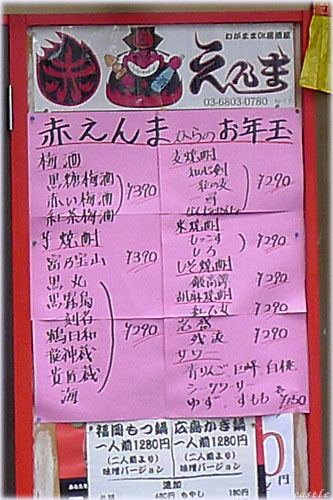 わがままOK居酒屋
えんま
03-6803-0780
赤えんまからのお年玉
梅酒
黒糖梅酒
赤い梅酒
紅茶梅酒
¥390
芋焼酎
富乃宝山
¥390
黒丸
黒霧島
刻名
鶴日和
龍神蔵
貴匠蔵
海
¥290
麦焼酎
一番
¥290
米焼酎
しろ
¥290
しそ焼酎
鍛高譚
¥290
胡麻焼酎
紅乙女
¥290
泡盛
残波
¥290
サワー
青りんご 巨峰 白桃
シークワーサー
ゆず すもも
福岡もつ鍋
一人前1280円
(二人前より)
味噌バージョン
広島かき鍋
一人前1280円
(二人前より)
味噌バージョン
追加
480円 もやし 180円
円